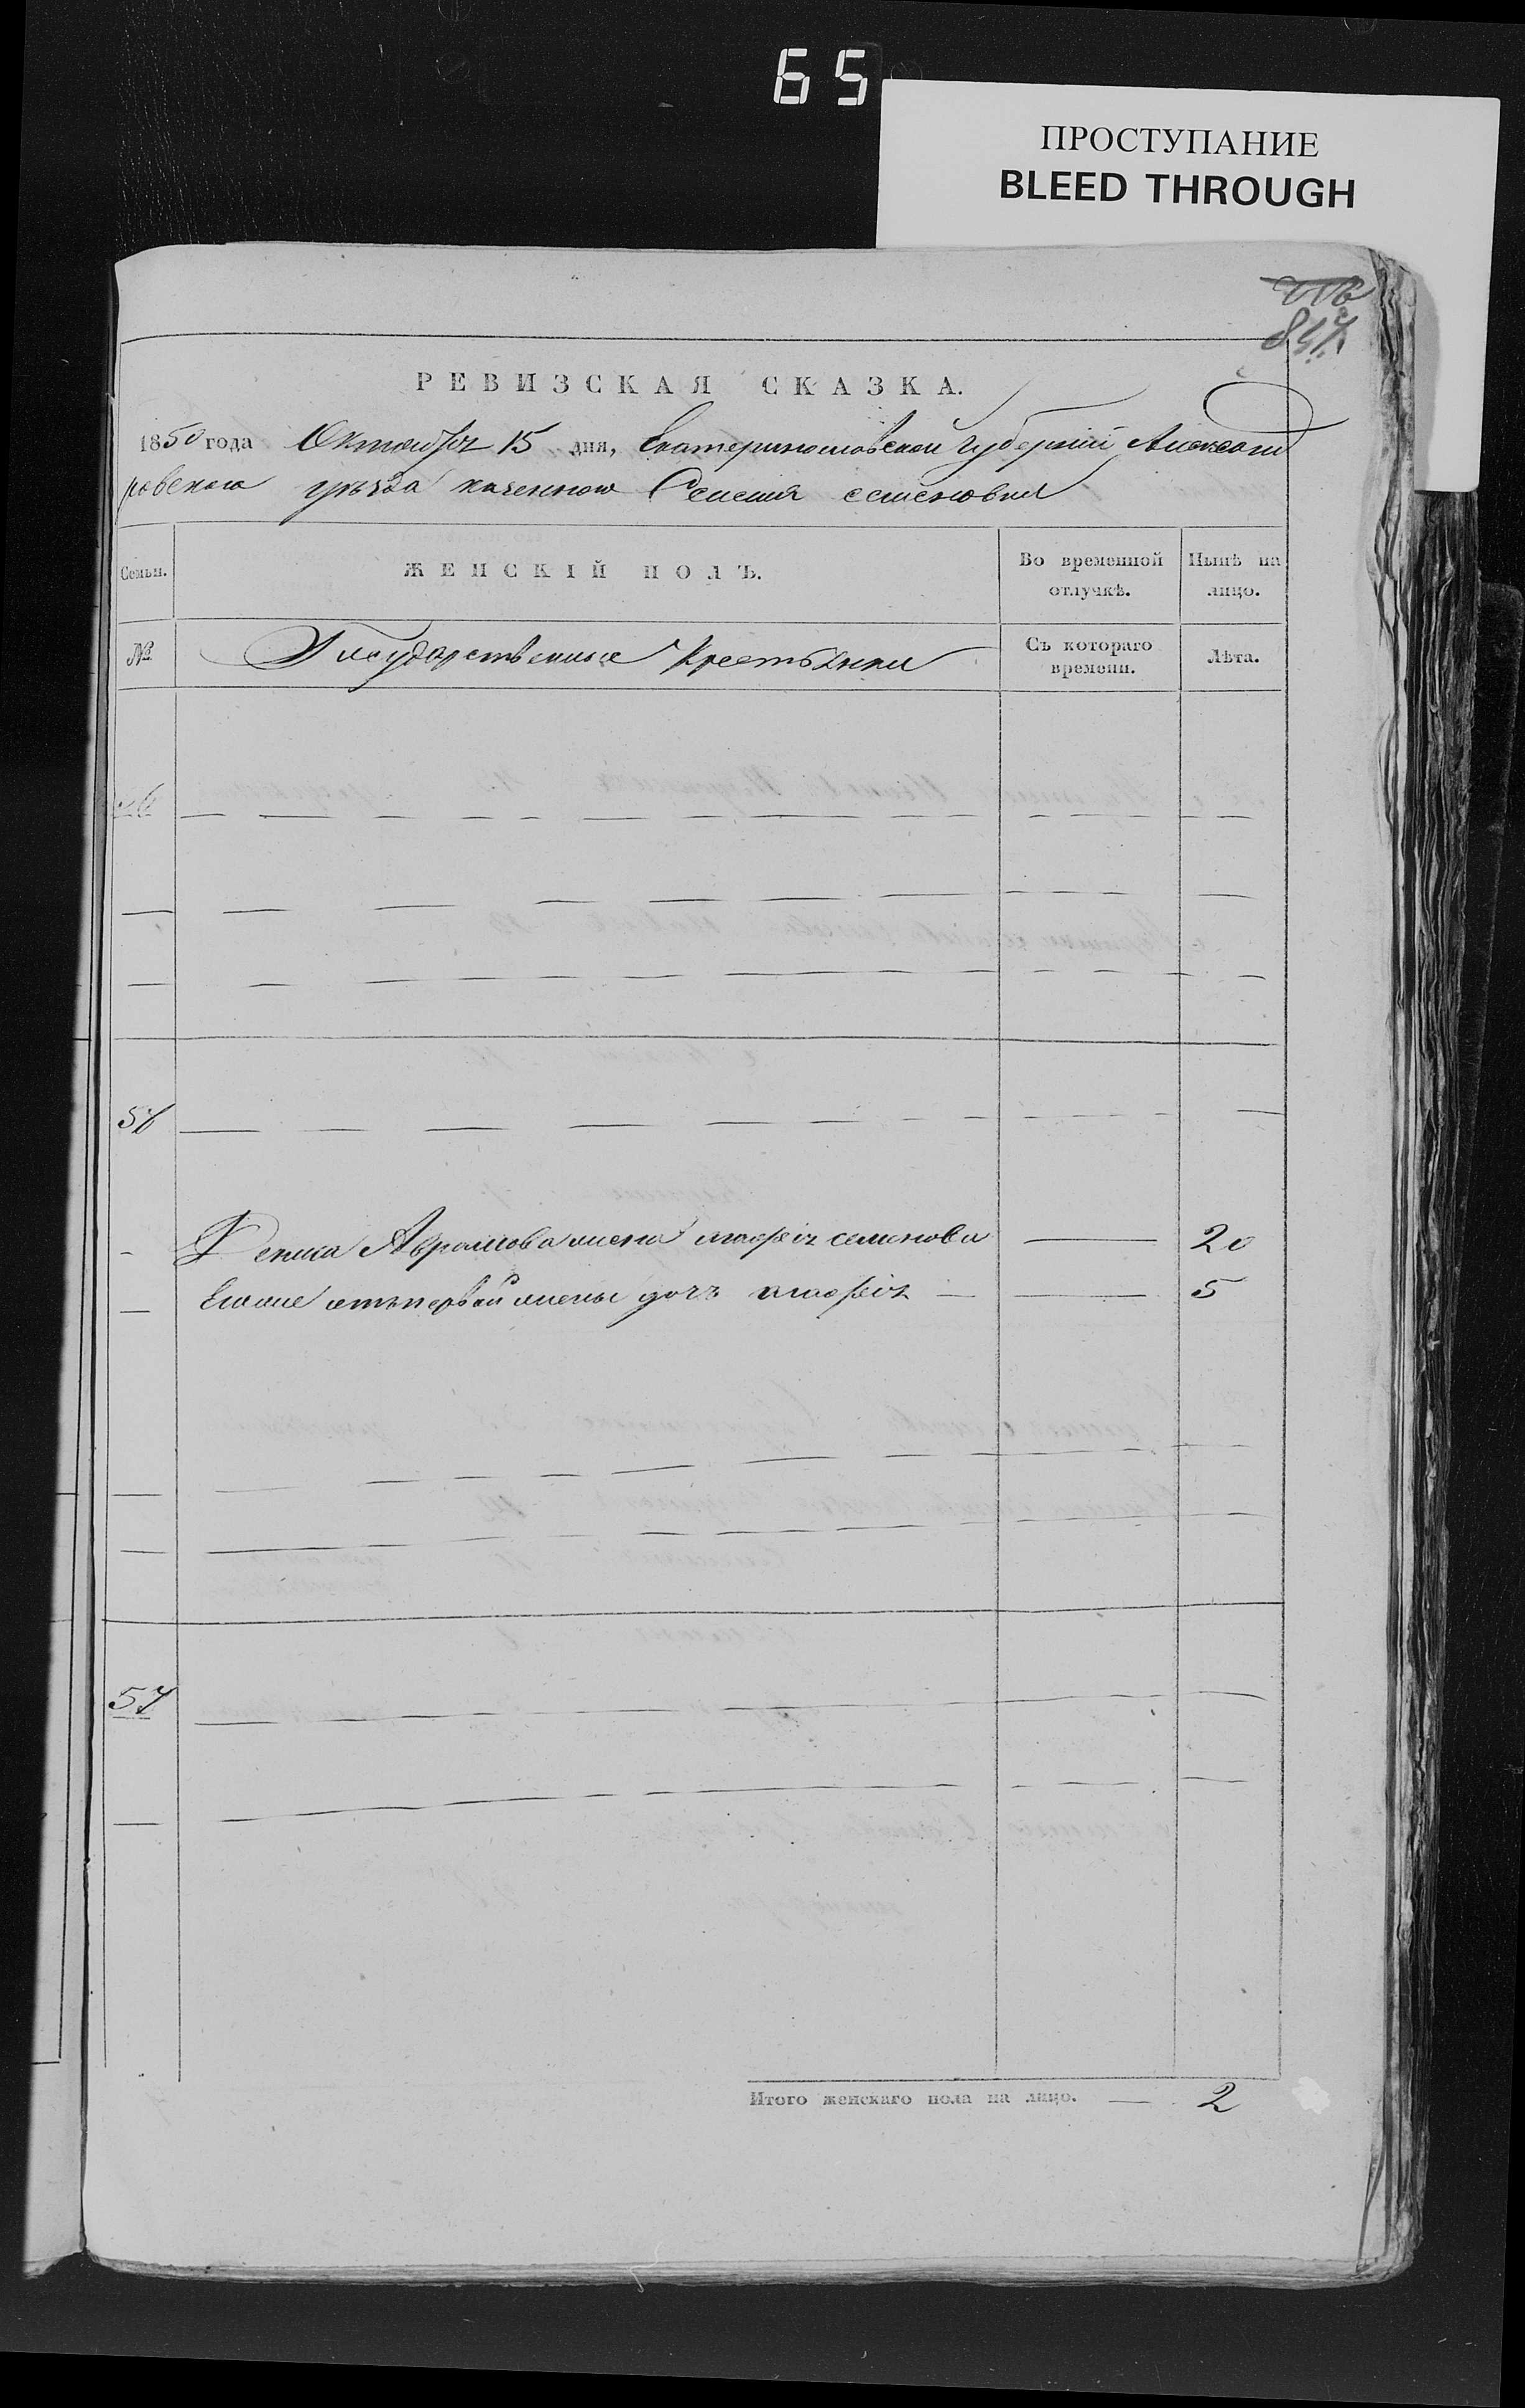 65
ПРОСТУПАНИЕ
BLEED THROUGH
847
РЕВИЗСКАЯ СКАЗКА.
1850 года Октября 15 дня, Екатеринославской Губернии Александ
ровского уѣзда казенного Селения семеновки
Семьи. ЖЕНСКІЙ ПОЛЪ. Во временной отлучкѣ. Нынѣ на лицо.
№ Государственные Крестьянки Съ котораго времени. Лѣта.
56
Аврамова жена семенова 20
Егоже отъ первой жены дочь 5
57
Итого женскаго пола на лицо. 2